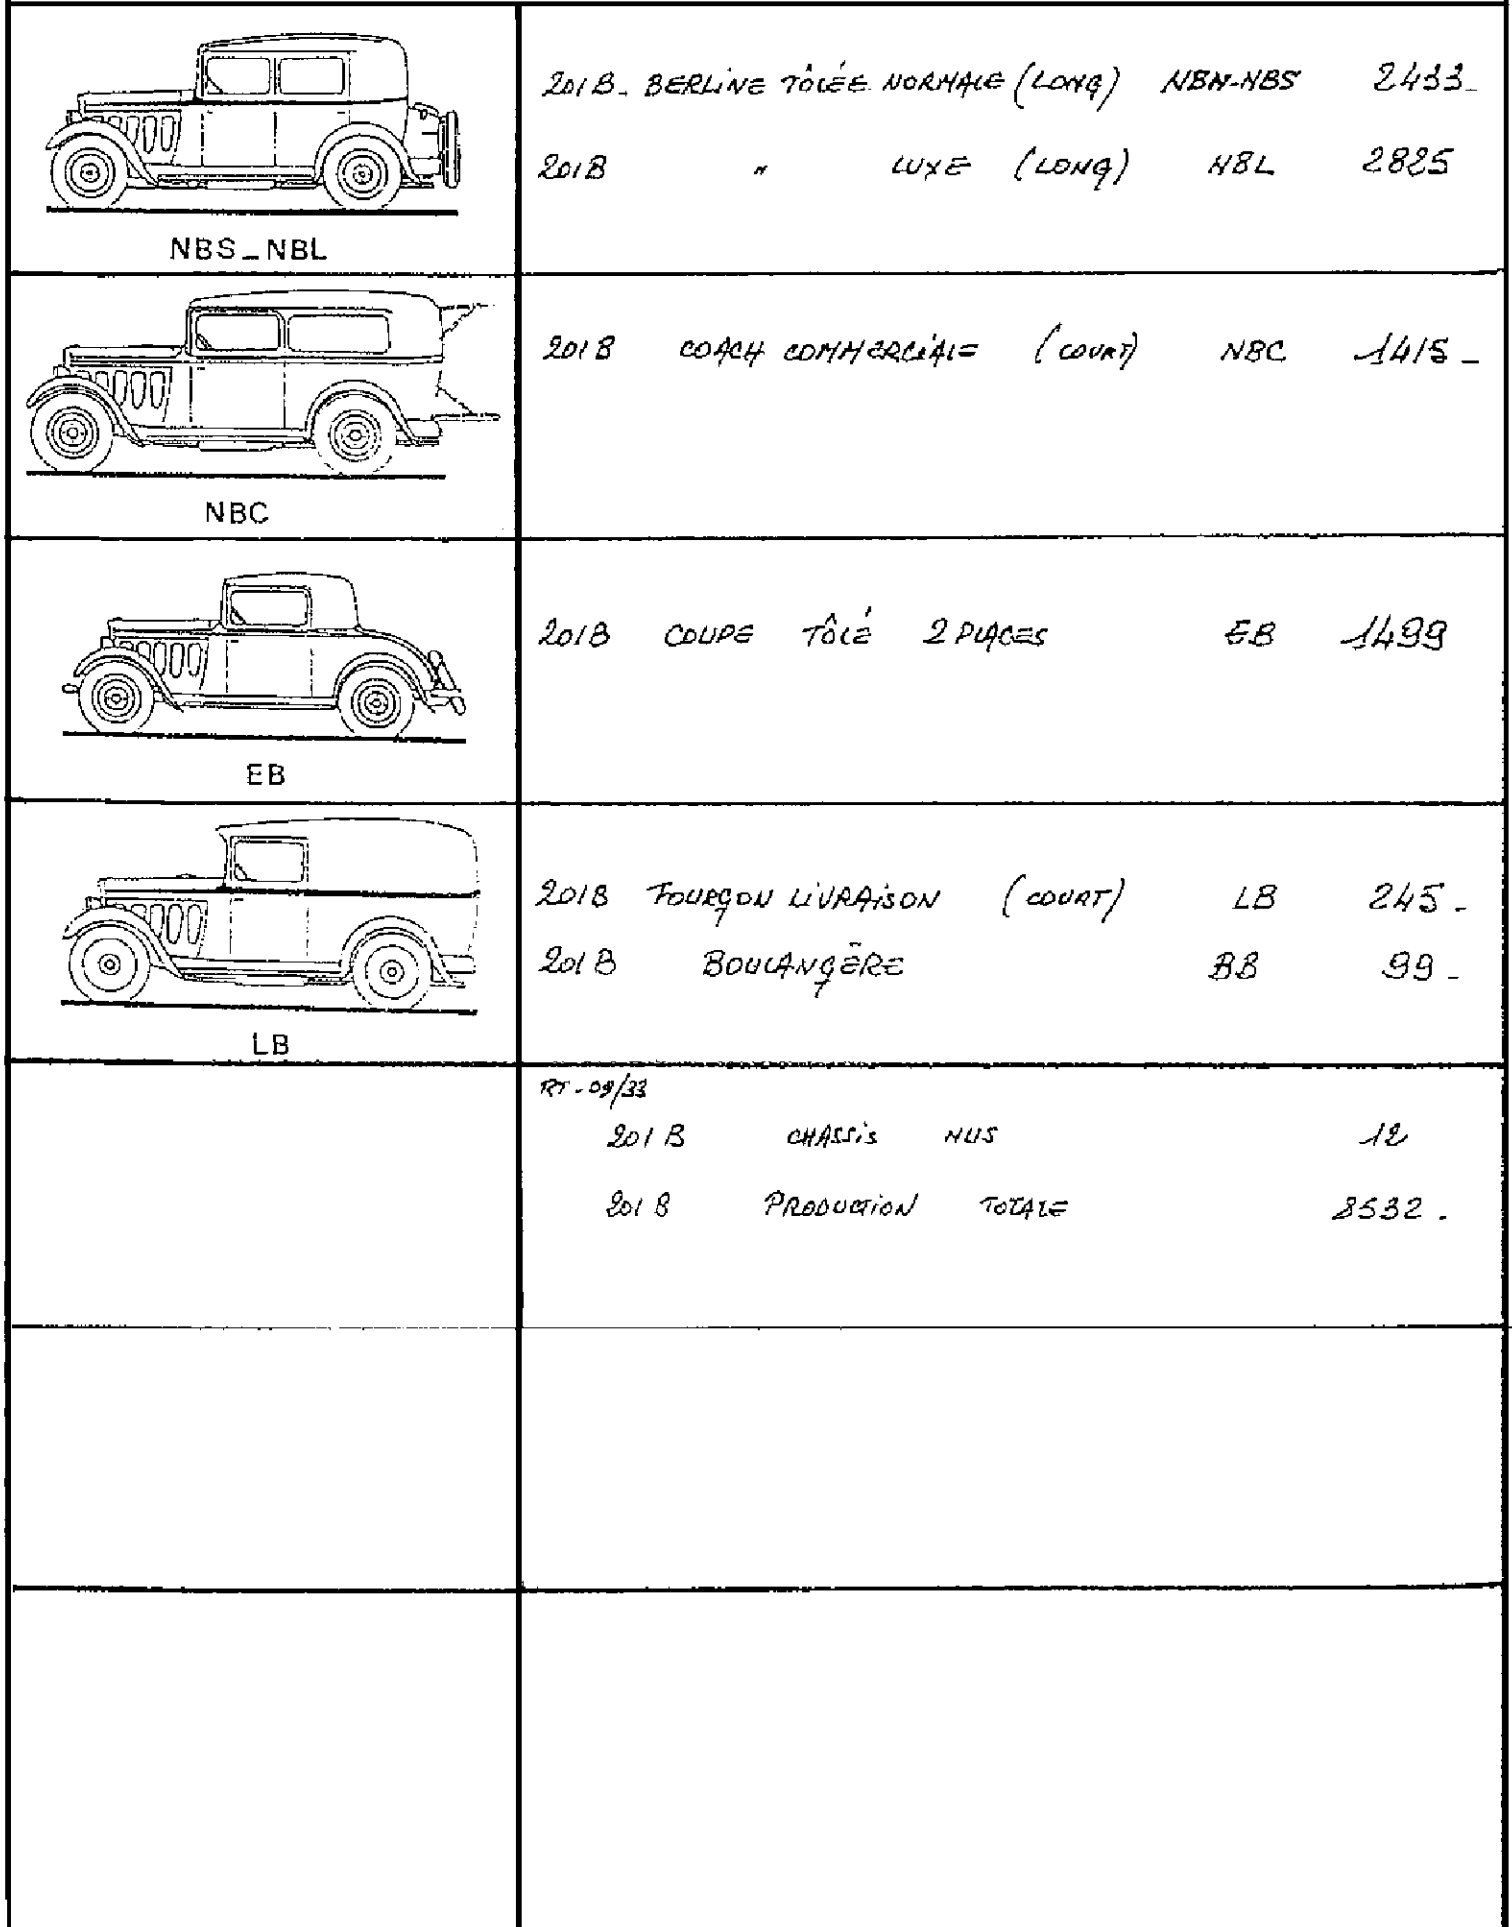 201B - BERLINE TÔLÉE NORMALE (LONG) NBN-NBS 2433-
201B " LUXE (LONG) NBL 2825
NBS_NBL
201B COACH COMMERCIALE (COURT) NBC 1415-
NBC
201B COUPE TÔLÉ 2 PLACES EB 1499
EB
201B FOURGON LIVRAISON (COURT) LB 245-
201B BOULANGÈRE BB 99-
LB
RT-09/33
201B CHASSIS NUS 12
201B PRODUCTION TOTALE 8532.